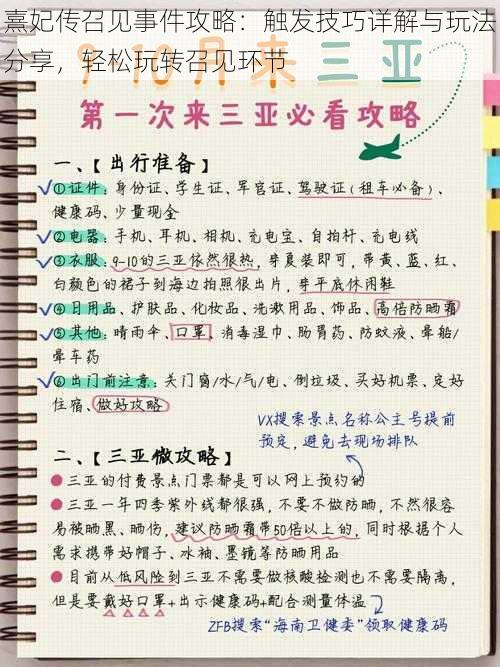 熹妃传召见事件攻略：触发技巧详解与玩法
分享，轻松玩转召见环节
9-10月来三亚
第一次来三亚必看攻略
一、【出行准备】
①证件：身份证、学生证、军官证、驾驶证(租车必备)、
健康码、少量现金
②电器：手机、耳机、相机、充电宝、自拍杆、充电线
③衣服：9-10的三亚依然很热，带夏装即可，带黄、蓝、红、
白颜色的裙子到海边拍照很出片，带平底休闲鞋
④日用品、护肤品、化妆品、洗漱用品、饰品、高倍防晒霜
⑤其他：晴雨伞、口罩、消毒湿巾、肠胃药、防蚊液、晕船/
晕车药
⑥出门前注意：关门窗/水/气/电、倒垃圾、买好机票、定好
住宿、做好攻略
VX搜索景点名称公主号提前
预定，避免去现场排队
二、【三亚微攻略】
三亚的付费景点门票都是可以网上预约的
三亚一年四季紫外线都很强，不要不做防晒，不然很容
易被晒黑、晒伤，建议防晒霜带50倍以上的，同时根据个人
需求携带好帽子、水袖、墨镜等防晒用品
目前从低风险到三亚不需要做核酸检测也不需要隔离，
但是要戴好口罩+出示健康码+配合测量体温
ZFB搜索“海南卫健委”领取健康码